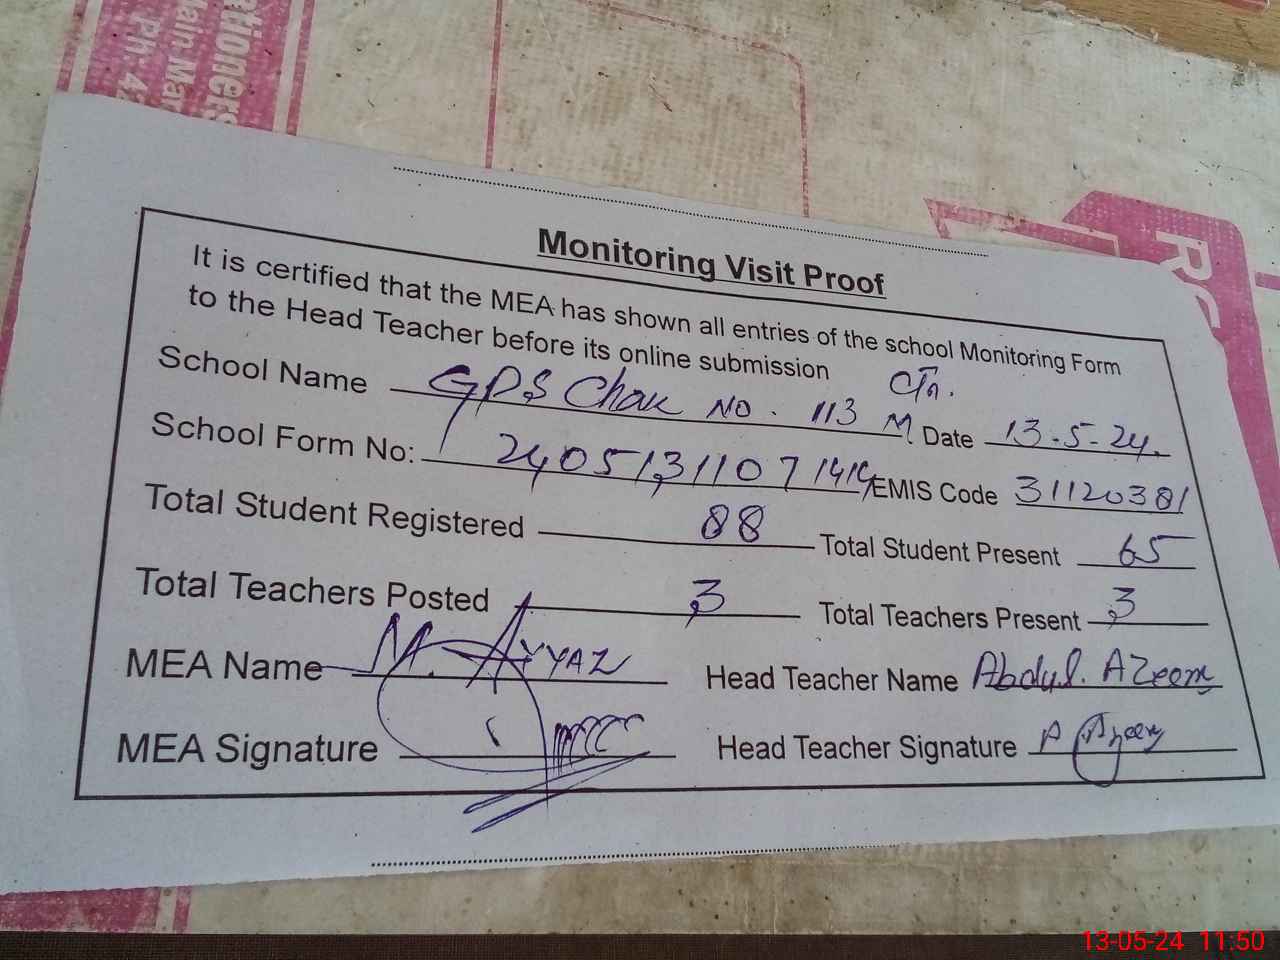 etioners
Main Mar
Ph: 4
RC
Monitoring Visit Proof
It is certified that the MEA has shown all entries of the school Monitoring Form
to the Head Teacher before its online submission
School Name GPS Chak No. 113 M Date 13-5-24.
School Form No: 24051311071414 EMIS Code 31120381
Total Student Registered 88 Total Student Present 65
Total Teachers Posted 3 Total Teachers Present 3
MEA Name M. Ayyaz Head Teacher Name Abdul. Azeem
MEA Signature Head Teacher Signature A Azeem
13-05-24 11:50